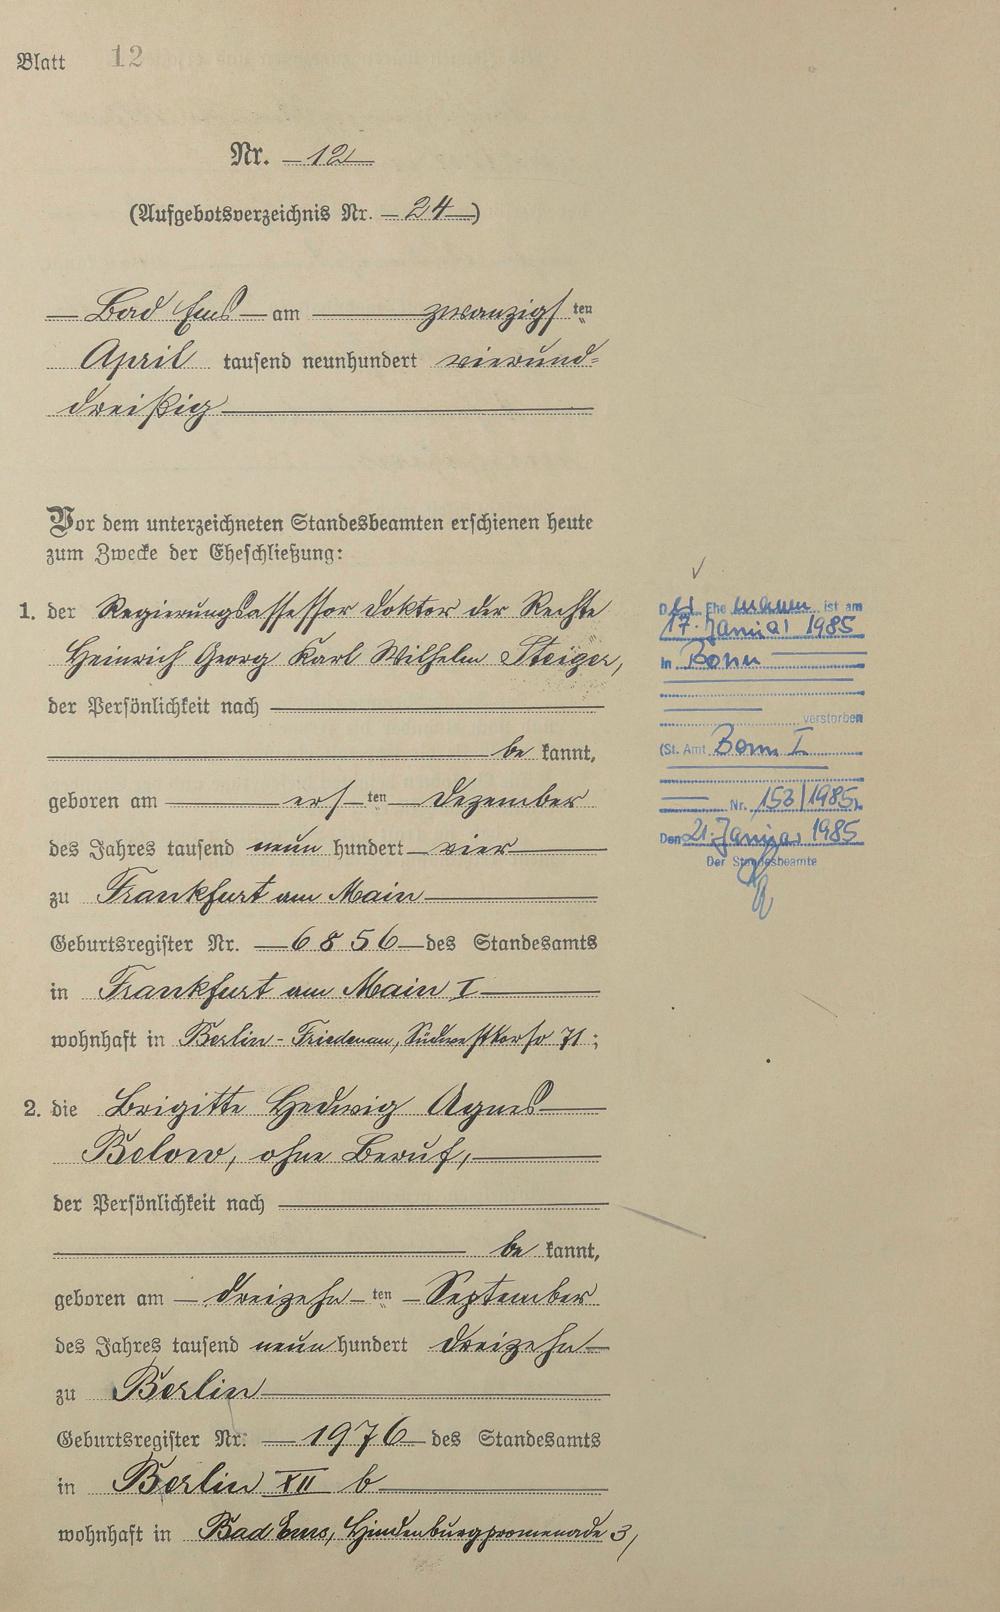 Blatt 12
Nr. 12
(Aufgebotsverzeichnis Nr. 24)
Bad Ems am zwanzigsten
April tausend neunhundert vierund-
dreißig
Vor dem unterzeichneten Standesbeamten erschienen heute
zum Zwecke der Eheschließung:
1. der Regierungsassessor Doktor der Rechte
Heinrich Georg Karl Wilhelm Steiger,
der Persönlichkeit nach
be kannt,
geboren am ersten Dezember
des Jahres tausend neun hundert vier
zu Frankfurt am Main
Geburtsregister Nr. 6856 des Standesamts
in Frankfurt am Main I
wohnhaft in Berlin-Friedenau, Südwestkorso 71;
2. die Brigitte Hedwig Agnes
Below, ohne Beruf,
der Persönlichkeit nach
be kannt,
geboren am dreizehnten September
des Jahres tausend neun hundert dreizehn
zu Berlin
Geburtsregister Nr. 1976 des Standesamts
in Berlin XII b
wohnhaft in Bad Ems, Hindenburgpromenade 3,
Der Ehemann ist am
17. Januar 1985
in Bonn
verstorben
(St. Amt Bonn I
Nr. 153/1985)
Den 21. Januar 1985
Der Standesbeamte